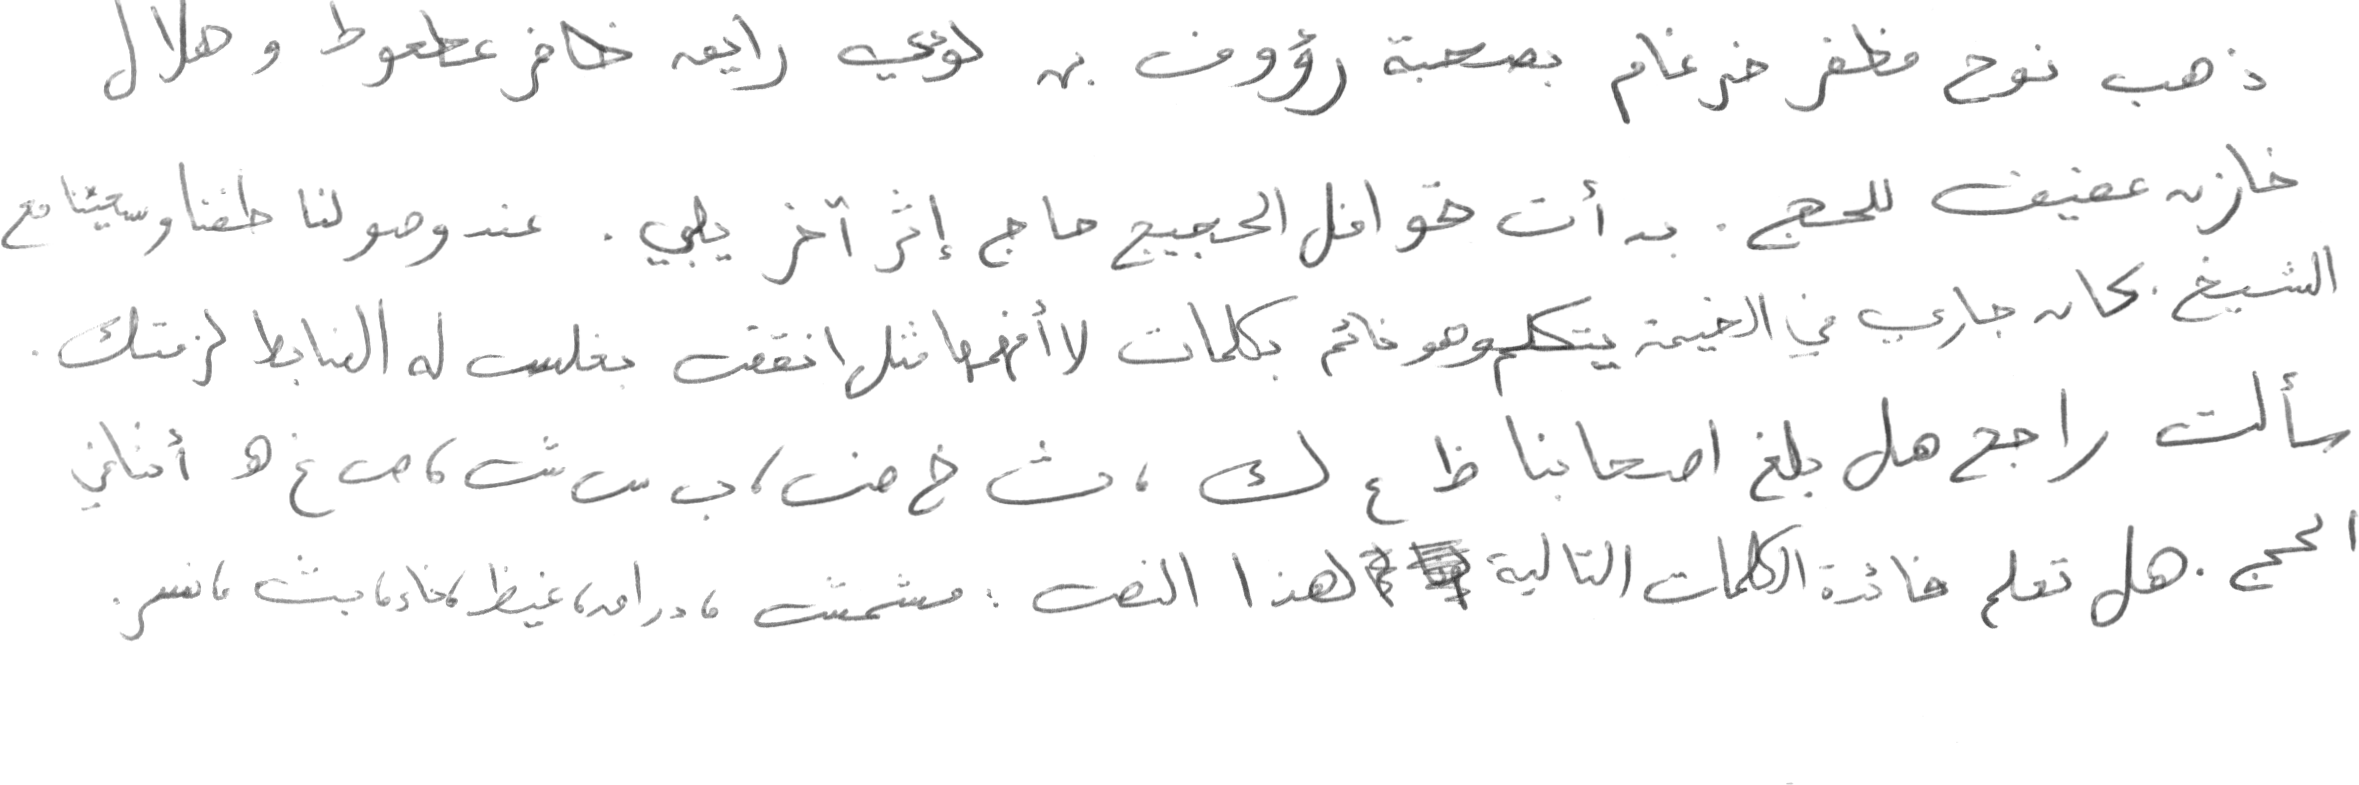 ذهب نوح مظفر ضرغام بصحبة رؤوف بن لؤي رايق ظافر عطعوط و هلال
خازن عفيف للحج . بدأت قوافل الحجيج حاج إثر آخر يلبي . عند وصولنا طفنا وسعينا مع
الشيخ . كان جاري في الخيمة يتكلم وهو نائم بكلمات لا أفهمها مثل انفقت بغلس له الضابط لزمتك .
سألت راجح هل بلغ اصحابنا ظ ع ك ، ث خ ض ، ب س ش ، ص غ ه أثناء
الحج . هل تعلم فائدة الكلمات التالية لهذا النص : مشمش ، درامه ، غيظ ، ناء ، بث ، نسر .